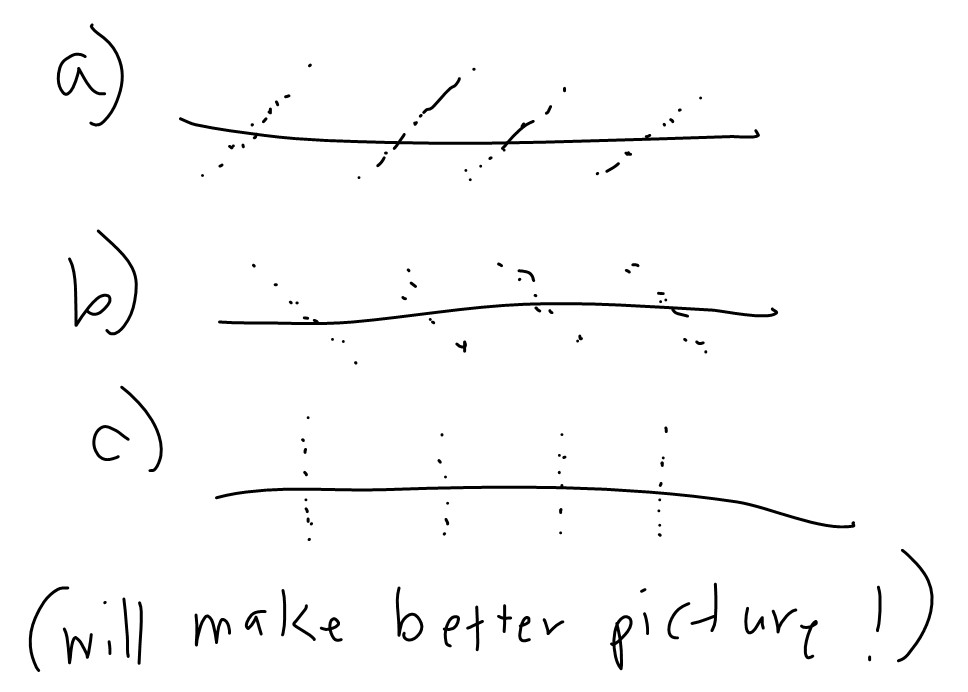 a)
b)
c)
(will make better picture!)